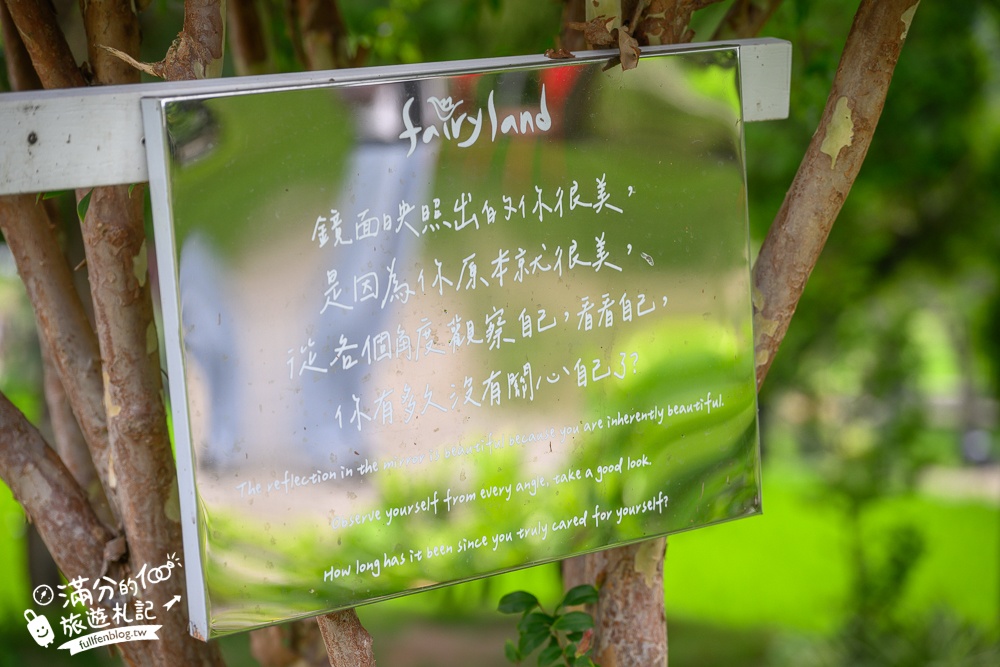 fairyland
鏡面映照出的你很美，
是因為你原本就很美，
從各個角度觀察自己，看看自己，
你有多久沒有關心自己了？
The reflection in the mirror is beautiful because you are inherently beautiful.
Observe yourself from every angle, take a good look.
How long has it been since you truly cared for yourself?
滿分的
旅遊札記
fullfenblog.tw